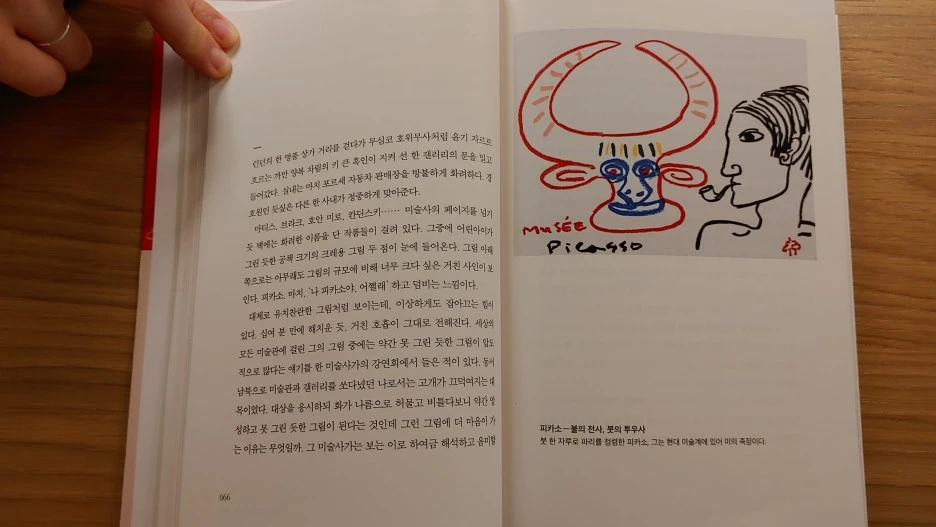 런던의 한 명품 상가 거리를 걷다가 무심코 호위무사처럼 윤기 자르르
흐르는 까만 양복 차림의 키 큰 흑인이 지켜 선 한 갤러리의 문을 밀고
들어갔다. 실내는 마치 포르셰 자동차 판매장을 방불하게 화려하다. 경
호원인 듯싶은 다른 한 사내가 정중하게 맞아준다.
마티스, 브라크, 호안 미로, 칸딘스키…… 미술사의 페이지를 넘기
듯 벽에는 화려한 이름을 단 작품들이 걸려 있다. 그중에 어린아이가
그린 듯한 공책 크기의 크레용 그림 두 점이 눈에 들어온다. 그림 아래
쪽으로는 아무래도 그림의 규모에 비해 너무 크다 싶은 거친 사인이 보
인다. 피카소. 마치, '나 피카소야, 어쩔래' 하고 덤비는 느낌이다.
대체로 유치찬란한 그림처럼 보이는데, 이상하게도 잡아끄는 힘이
있다. 심여 분 만에 해치운 듯, 거친 호흡이 그대로 전해진다. 세상의
모든 미술관에 걸린 그의 그림 중에는 약간 못 그린 듯한 그림이 압도
적으로 많다는 얘기를 한 미술사가의 강연회에서 들은 적이 있다. 동서
남북으로 미술관과 갤러리를 쏘다녔던 나로서는 고개가 끄덕여지는 대
목이었다. 대상을 응시하되 화가 나름으로 허물고 비틀다보니 약간 엉
성하고 못 그린 듯한 그림이 된다는 것인데 그런 그림에 더 마음이 가
는 이유는 무엇일까. 그 미술사가는 보는 이로 하여금 해석하고 음미할
066
MUSÉE
Picasso
피카소—불의 전사, 붓의 투우사
붓 한 자루로 파리를 점령한 피카소, 그는 현대 미술계에 있어 미의 축장이다.